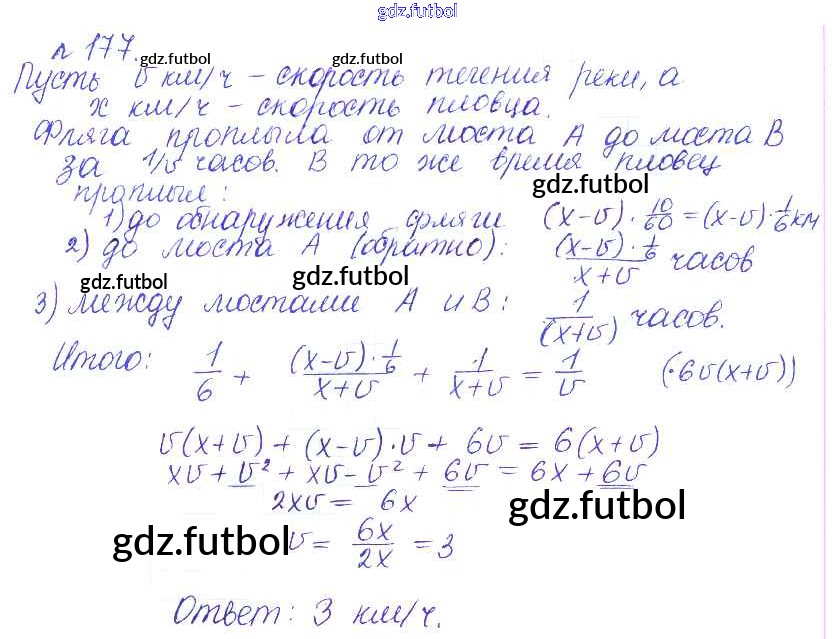 gdz.futbol
№ 177. gdz.futbol gdz.futbol
Пусть v км/ч – скорость течения реки, а
x км/ч – скорость пловца.
Фляга проплыла от моста А до моста В
за 1/v часов. В то же время пловец
проплыл: gdz.futbol
1) до обнаружения фляги (x-v)·10/60=(x-v)·1/6 км
2) до моста А (обратно): (x-v)·1/6 / x+v часов
gdz.futbol gdz.futbol
3) между мостами А и В: 1/(x+v) часов.
Итого: 1/6 + (x-v)·1/6 / x+v + 1/x+v = 1/v (·6v(x+v))
v(x+v) + (x-v)·v + 6v = 6(x+v)
xv + v² + xv - v² + 6v = 6x + 6v
2xv = 6x gdz.futbol
gdz.futbol v = 6x/2x = 3
Ответ: 3 км/ч.